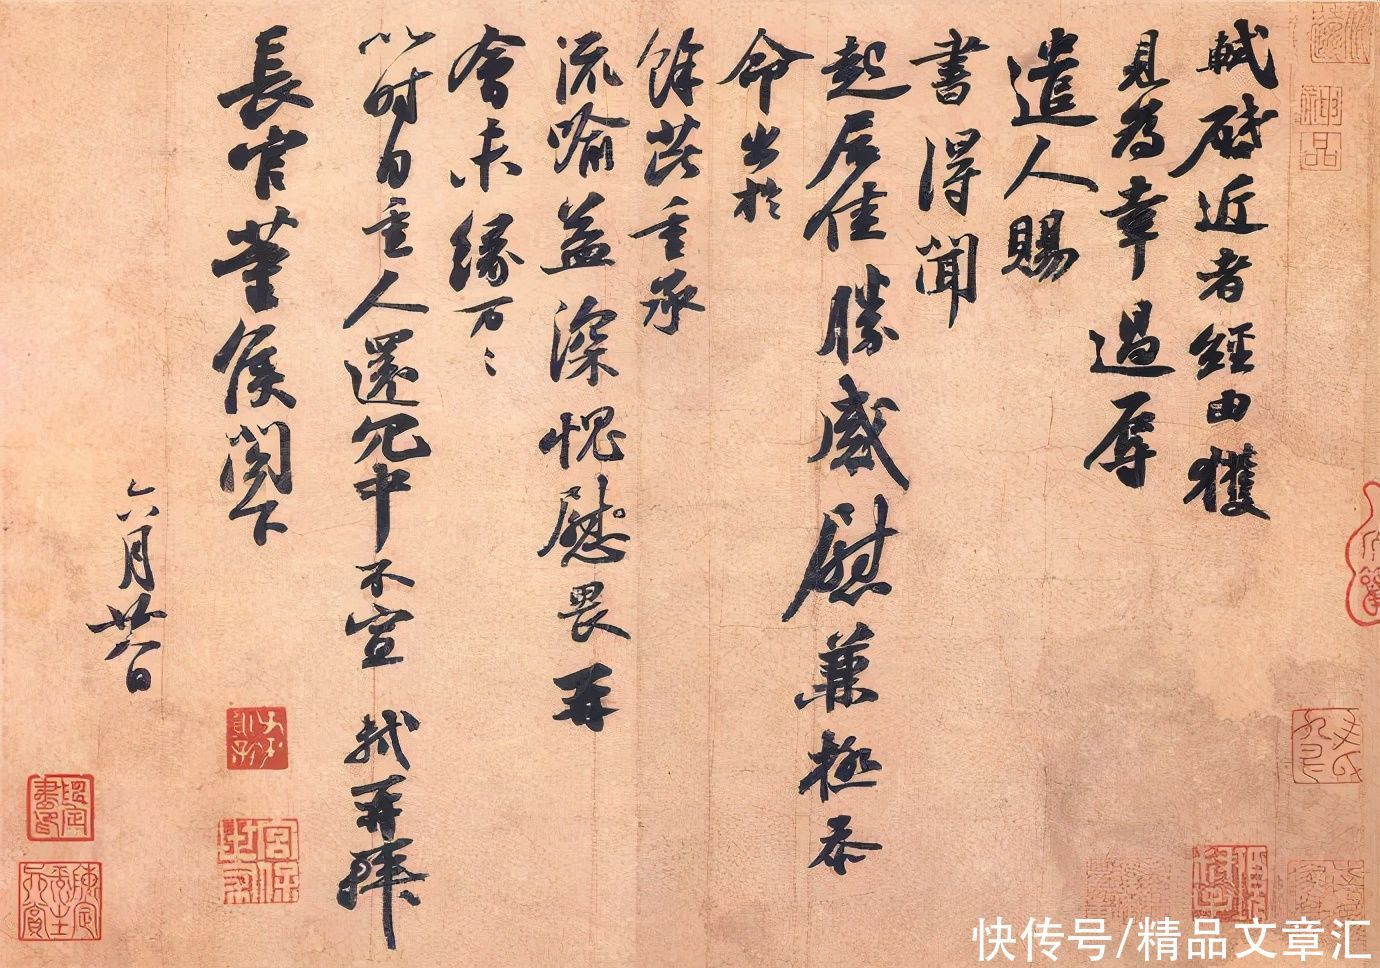 軾啓近者經由獲
見爲幸過辱
遣人賜
書得聞
起居佳勝感慰兼極忝
命出於
餘芘重承
流喻益深愧慰畏再
會未緣万〻
以時自重人還冗中不宣 軾再拜
長官董侯閣下
六月廿八日
快传号/精品文章汇